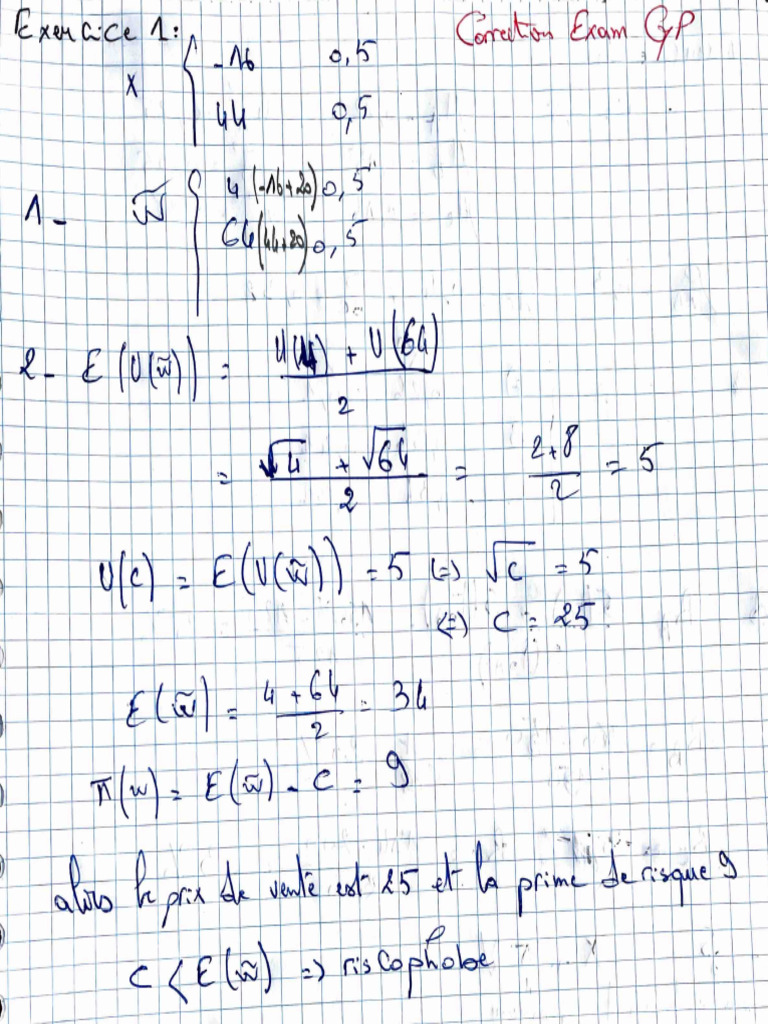 Exercice 1:
Correction Exam GP
X { -16 0,5
44 0,5
1- W̃ { 4 (-16+20) 0,5
64 (44+20) 0,5
2- E(U(w̃)) = U(4) + U(64) / 2
= √4 + √64 / 2 = 2+8 / 2 = 5
U(c) = E(U(w̃)) = 5 (=) √c = 5
(=) c = 25
E(w̃) = 4 + 64 / 2 = 34
π(w) = E(w̃) - c = 9
alors le prix de vente est 25 et la prime de risque 9
c < E(w̃) => riscophobe